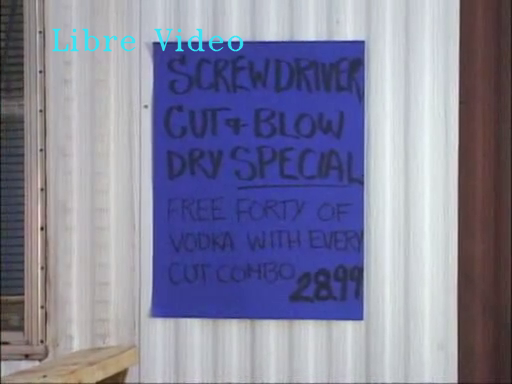 Libre Video
SCREWDRIVER
CUT & BLOW
DRY SPECIAL
FREE FORTY OF
VODKA WITH EVERY
CUT COMBO 28.99